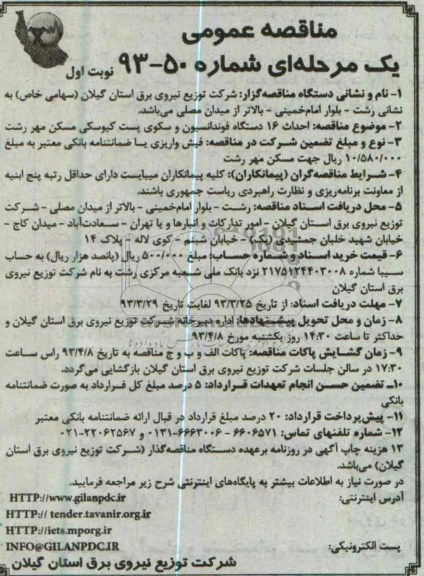 مناقصه عمومی
یک مرحله‌ای شماره ۵۰-۹۳ نوبت اول
۱- نام و نشانی دستگاه مناقصه‌گزار: شرکت توزیع نیروی برق استان گیلان (سهامی خاص) به
نشانی رشت - بلوار امام‌خمینی - بالاتر از میدان مصلی می‌باشد.
۲- موضوع مناقصه: احداث ۱۶ دستگاه فوندانسیون و سکوی پست کیوسکی مسکن مهر رشت
۳- نوع و مبلغ تضمین شرکت در مناقصه: فیش واریزی یا ضمانتنامه بانکی معتبر به مبلغ
۱۰/۵۸۰/۰۰۰ ریال جهت مسکن مهر رشت
۴- شرایط مناقصه‌گران (پیمانکاران): کلیه پیمانکاران میبایست دارای حداقل رتبه پنج ابنیه
از معاونت برنامه‌ریزی و نظارت راهبردی ریاست جمهوری باشند.
۵- محل دریافت اسناد مناقصه: رشت - بلوار امام‌خمینی - بالاتر از میدان مصلی - شرکت
توزیع نیروی برق استان گیلان - امور تدارکات و انبارها و یا تهران - سعادت‌آباد - میدان کاج -
خیابان شهید خلبان جمشیدی (یکم) - خیابان شبنم - کوی لاله - پلاک ۱۴
۶- قیمت خرید اسناد و شماره حساب: مبلغ ۵۰۰/۰۰۰ ریال (پانصد هزار ریال) به حساب
سیبا شماره ۲۱۷۵۱۲۴۴۰۳۰۰۸ نزد بانک ملی شعبه مرکزی رشت به نام شرکت توزیع نیروی
برق استان گیلان
۷- مهلت دریافت اسناد: از تاریخ ۹۳/۳/۲۵ لغایت تاریخ ۹۳/۳/۲۹
۸- زمان و محل تحویل پیشنهادها: اداره دبیرخانه شرکت توزیع نیروی برق استان گیلان و
حداکثر تا ساعت ۱۴:۳۰ روز یکشنبه مورخ ۹۳/۴/۸
۹- زمان گشایش پاکات مناقصه: پاکات الف و ب و ج مناقصه به تاریخ ۹۳/۴/۸ راس ساعت
۱۷:۳۰ در سالن جلسات شرکت توزیع نیروی برق استان گیلان بازگشایی می‌گردد.
۱۰- تضمین حسن انجام تعهدات قرارداد: ۵ درصد مبلغ کل قرارداد به صورت ضمانتنامه
بانکی
۱۱- پیش‌پرداخت قرارداد: ۲۰ درصد مبلغ قرارداد در قبال ارائه ضمانتنامه بانکی معتبر
۱۲- شماره تلفنهای تماس: ۶۶۰۶۵۷۱ - ۶۶۶۳۰۰۶-۰۱۳۱ و ۲۲۰۶۲۵۶۷-۰۲۱
۱۳ هزینه چاپ آگهی در روزنامه برعهده دستگاه مناقصه‌گذار (شرکت توزیع نیروی برق استان
گیلان) می‌باشد.
در صورت نیاز به اطلاعات بیشتر به پایگاه‌های اینترنتی شرح زیر مراجعه فرمایید.
آدرس اینترنتی: HTTP://www.gilanpdc.ir
HTTP:// tender.tavanir.org.ir
HTTP://iets.mporg.ir
پست الکترونیکی: INFO@GILANPDC.IR
شرکت توزیع نیروی برق استان گیلان